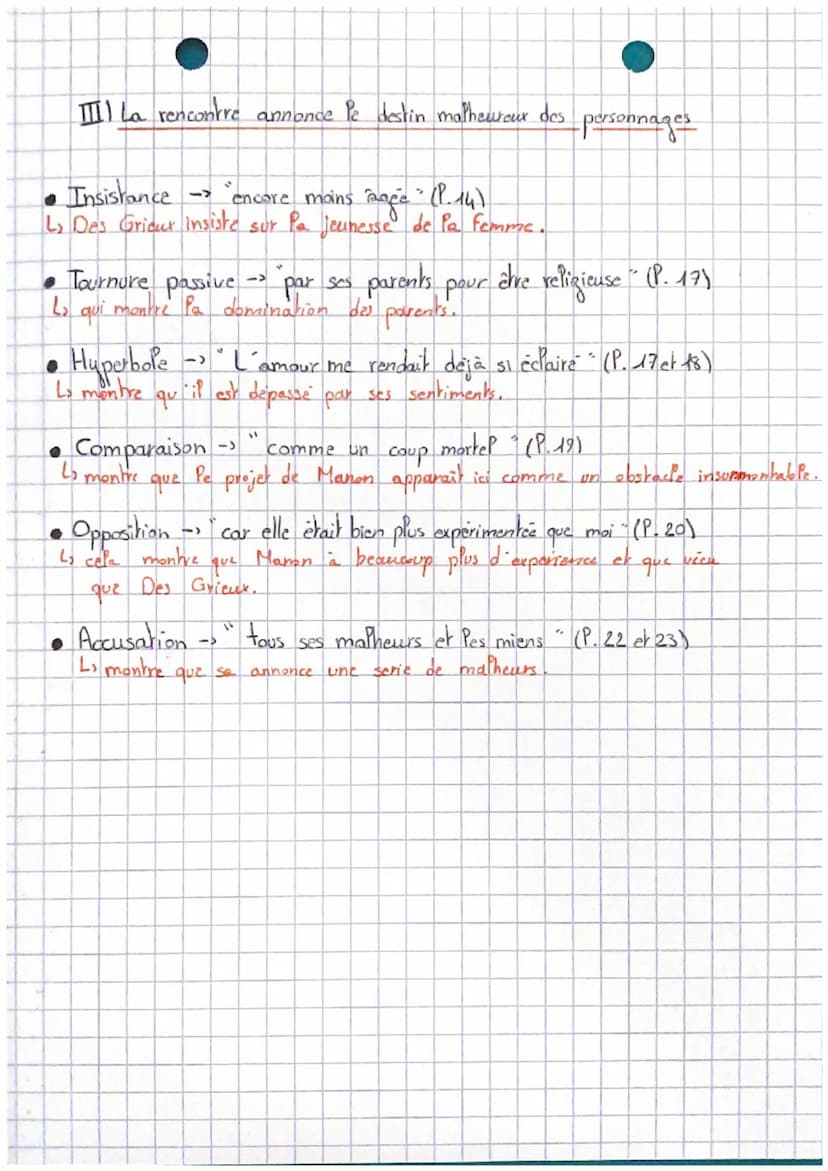 III) La rencontre annonce le destin malheureux des personnages
• Insistance -> "encore moins âgée" (l.14)
↳ Des Grieux insiste sur la jeunesse de la femme.
• Tournure passive -> "par ses parents pour être religieuse" (l.17)
↳ qui montre la domination des parents.
• Hyperbole -> "L'amour me rendait déjà si éclairé" (l.17 et 18)
↳ montre qu'il est dépassé par ses sentiments.
• Comparaison -> "comme un coup mortel" (l.19)
↳ montre que le projet de Manon apparaît ici comme un obstacle insurmontable.
• Opposition -> "car elle était bien plus expérimentée que moi" (l.20)
↳ cela montre que Manon à beaucoup plus d'experience et que vécu
que Des Grieux.
• Accusation -> "tous ses malheurs et les miens" (l.22 et 23)
↳ montre que se annonce une serie de malheurs.